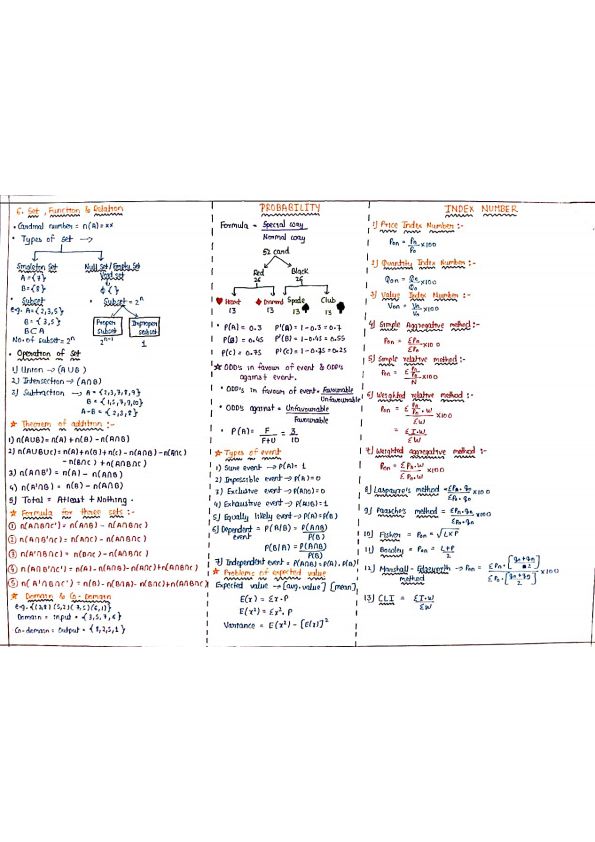 6. Set, Function & Relation
• Cardinal number = n(A) = xx
• Types of set →
Singleton Set
A = {7}
B = {8}
Null Set / Empty Set
Void set
φ { }
• Subset
e.g. A = {2,3,5}
B = {3,5}
B C A
No. of subset = 2ⁿ
• Subset = 2ⁿ
Proper subset
2ⁿ⁻¹
Improper subset
1
• Operation of Set
1) Union → (A ∪ B)
2) Intersection → (A∩B)
3) Subtraction → A = {2,3,7,8,9}
B = {1,5,7,9,10}
A-B = {2,3,8}
★ Theorem of addition :-
1) n(A∪B) = n(A) + n(B) - n(A∩B)
2) n(A∪B∪C) = n(A)+n(B)+n(C)-n(A∩B)-n(B∩C)
- n(B∩C) + n(A∩B∩C)
3) n(A∩B') = n(A) - n(A∩B)
4) n(A'∩B) = n(B) - n(A∩B)
5) Total = Atleast + Nothing.
★ Formula for three sets :-
① n(A∩B∩C') = n(A∩B) - n(A∩B∩C)
② n(A∩B'∩C) = n(A∩C) - n(A∩B∩C)
③ n(A'∩B∩C) = n(B∩C) - n(A∩B∩C)
④ n(A∩B'∩C') = n(A) - n(A∩B) - n(A∩C) + n(A∩B∩C)
⑤ n(A'∩B∩C') = n(B) - n(B∩A) - n(B∩C) + n(A∩B∩C)
★ Domain & Co-Domain
e.g. {(3,8) (5,2) (7,5) (6,1)}
Domain = input = {3,5,7,6}
Co-domain = output = {8,2,5,1}
PROBABILITY
Formula = Special way / Normal way
52 card
Red 26
Black 26
Heart 13
Diamond 13
Spade 13
Club 13
• P(A) = 0.3 P'(A) = 1-0.3 = 0.7
P(B) = 0.45 P'(B) = 1-0.45 = 0.55
P(C) = 0.75 P'(C) = 1-0.75 = 0.25
★ ODD's in favour of event & ODD's
against event.
• ODD's in favour of event = Favourable / Unfavourable
• ODD's against = Unfavourable / Favourable
• P(A) = F / F+U = 3 / 10
★ Types of event
1) Sure event → P(A) = 1
2) Impossible event → P(A) = 0
3) Exclusive event → P(A∩B) = 0
4) Exhaustive event → P(A∪B) = 1
5) Equally likely event → P(A) = P(B)
6) Dependent event = P(A/B) = P(A∩B) / P(B)
P(B/A) = P(A∩B) / P(A)
7) Independent event = P(A∩B) = P(A).P(B)
★ Problems of expected value
Expected value → [avg. value] [mean]
E(x) = Σx.P
E(x²) = Σx².P
Variance = E(x²) - [E(x)]²
INDEX NUMBER
1) Price Index Number :-
Pon = Pn / Po × 100
2) Quantity Index Number :-
Qon = Qn / Qo × 100
3) Value Index Number :-
Von = Vn / Vo × 100
4) Simple Aggregative method :-
Pon = ΣPn / ΣPo × 100
5) Simple relative method :-
Pon = Σ Pn/Po / N × 100
6) Weighted relative method :-
Pon = Σ Pn/Po . W / ΣW × 100
= ΣI.W / ΣW
7) Weighted aggregative method :-
Pon = ΣPn.W / ΣPo.W × 100
8) Laspeyre's method = ΣPn.qo / ΣPo.qo × 100
9) Paasche's method = ΣPn.qn / ΣPo.qn × 100
10) Fisher = Pon = √L×P
11) Bowley = Pon = L+P / 2
12) Marshall - Edgeworth method → Pon = ΣPn.[qo+qn / 2] / ΣPo.[qo+qn / 2] × 100
13) CLI = ΣI.W / ΣW